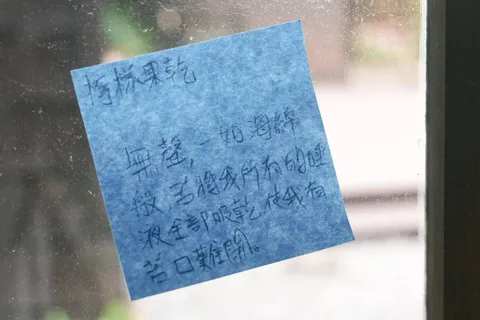 檸檬果乾
無聲,一如海綿
般 苦腦我所有的唾
液全部吸乾使我有
苦口難開。